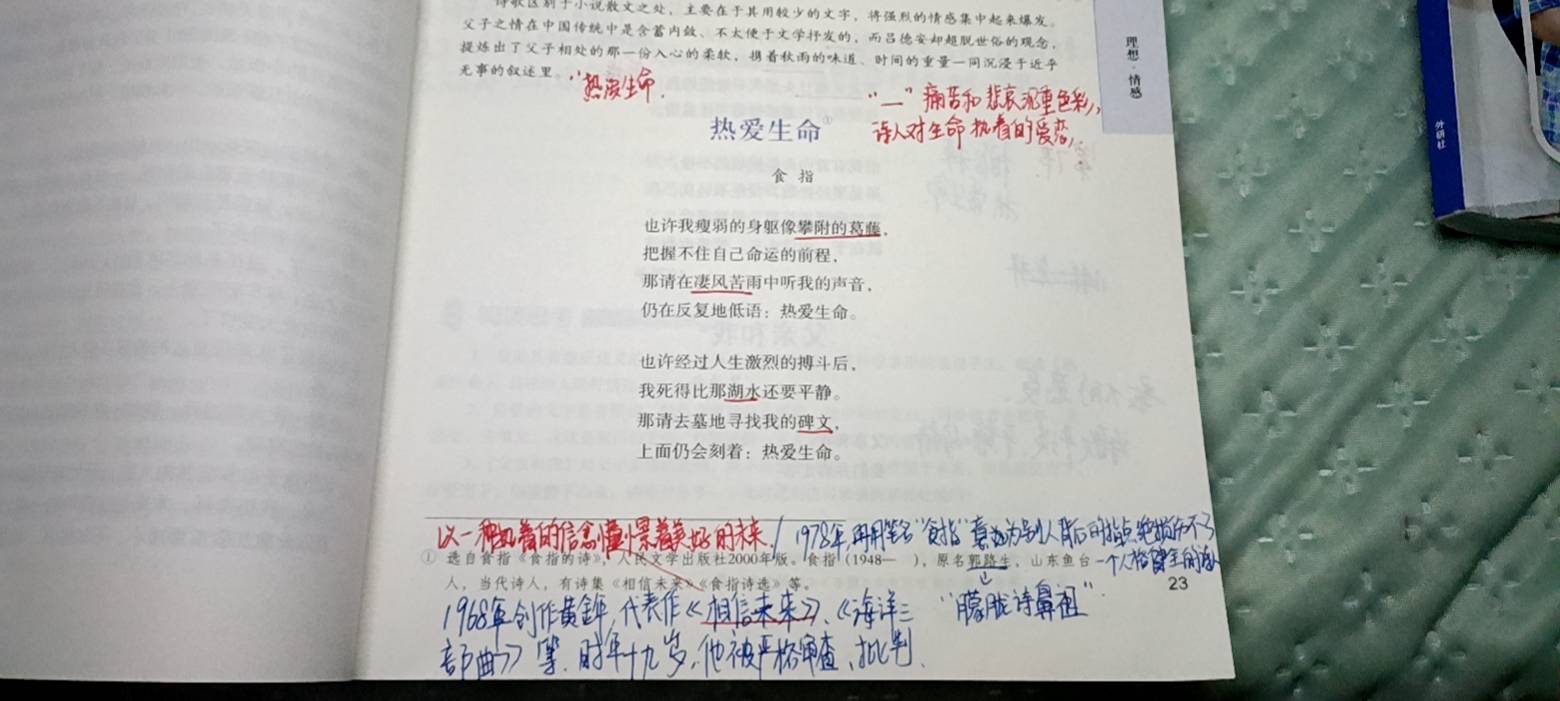 诗歌区别于小说散文之处，主要在于其用较少的文字，将强烈的情感集中起来爆发。
父子之情在中国传统中是含蓄内敛、不太便于文学抒发的，而吕德安却超脱世俗的观念，
提炼出了父子相处的那一份入心的柔软，携着秋雨的味道、时间的重量一同沉浸于近乎
无事的叙述里。
理想·情感
外研社
热爱生命
"—"痛苦和悲哀沉重色彩，
诗人对生命执着的爱恋，
热爱生命①
食 指
也许我瘦弱的身躯像攀附的葛藤，
把握不住自己命运的前程，
那请在凄风苦雨中听我的声音，
仍在反复地低语：热爱生命。
也许经过人生激烈的搏斗后，
我死得比那湖水还要平静。
那请去墓地寻找我的碑文，
上面仍会刻着：热爱生命。
以一种执着的信念憧憬着美好的未来
1978年，再用笔名"食指"意为别人背后的指点绝损伤不了
一个人格健全的诗人
① 选自食指《食指的诗》，人民文学出版社2000年版。食指（1948— ），原名郭路生，山东鱼台
人，当代诗人，有诗集《相信未来》《食指诗选》等。
23
"朦胧诗鼻祖"
1968年创作黄金年，代表作《相信未来》、《海洋三
部曲》等．时年十九岁，他被严格审查、批判．